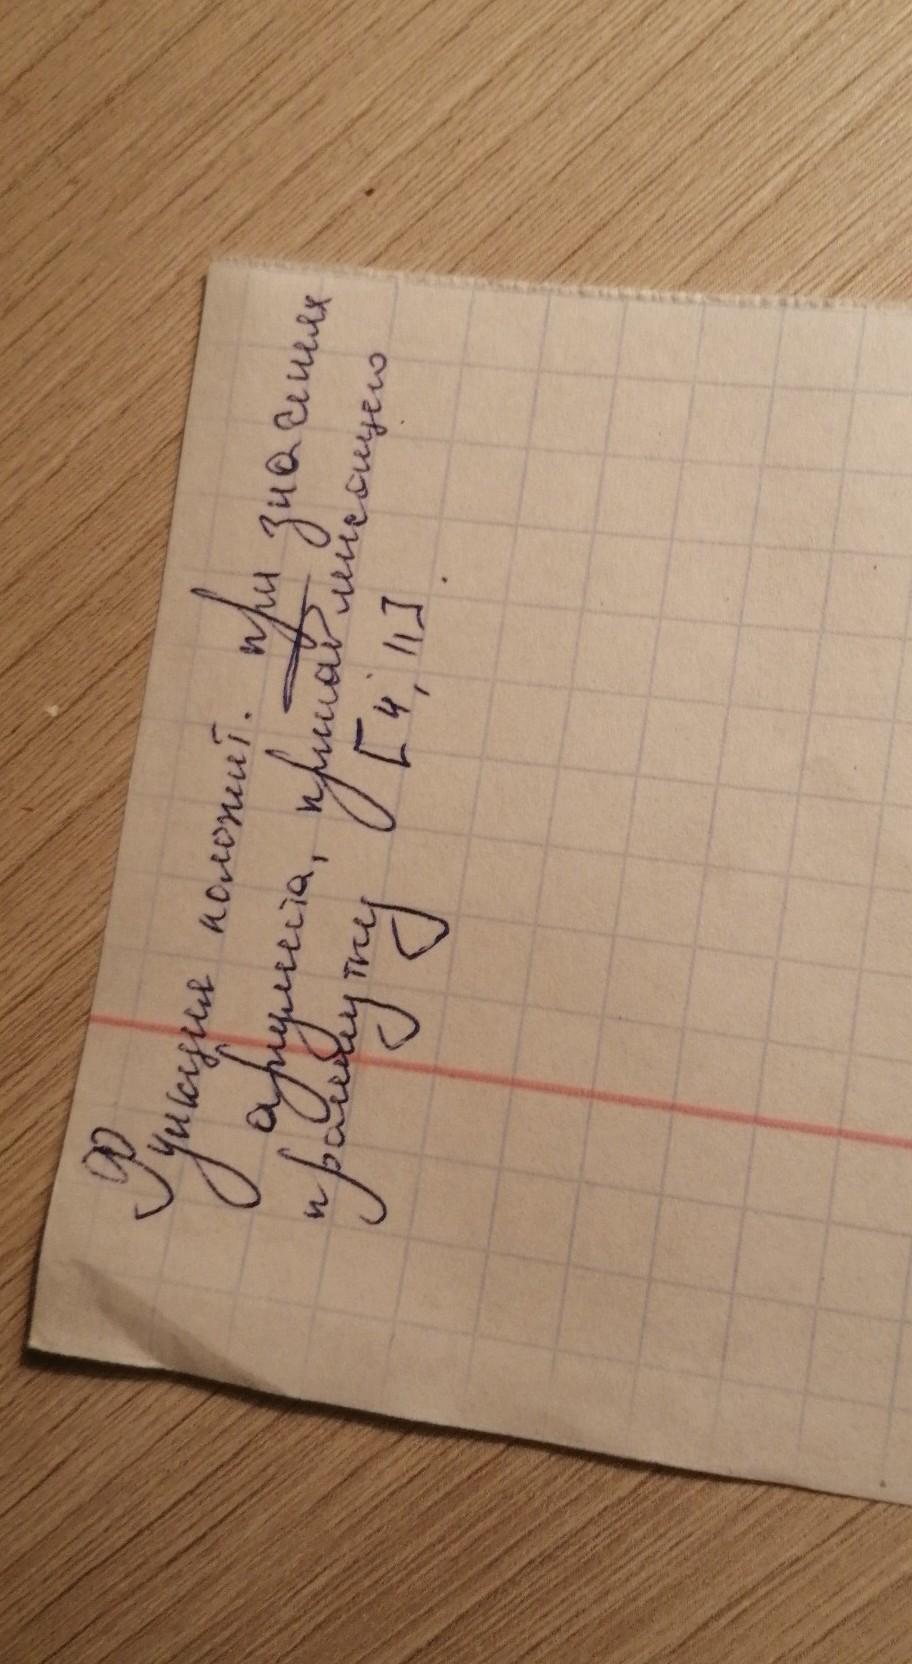 Функция полочит. при значениях
аргумента, принадлежащего
промежутку [4; 11]